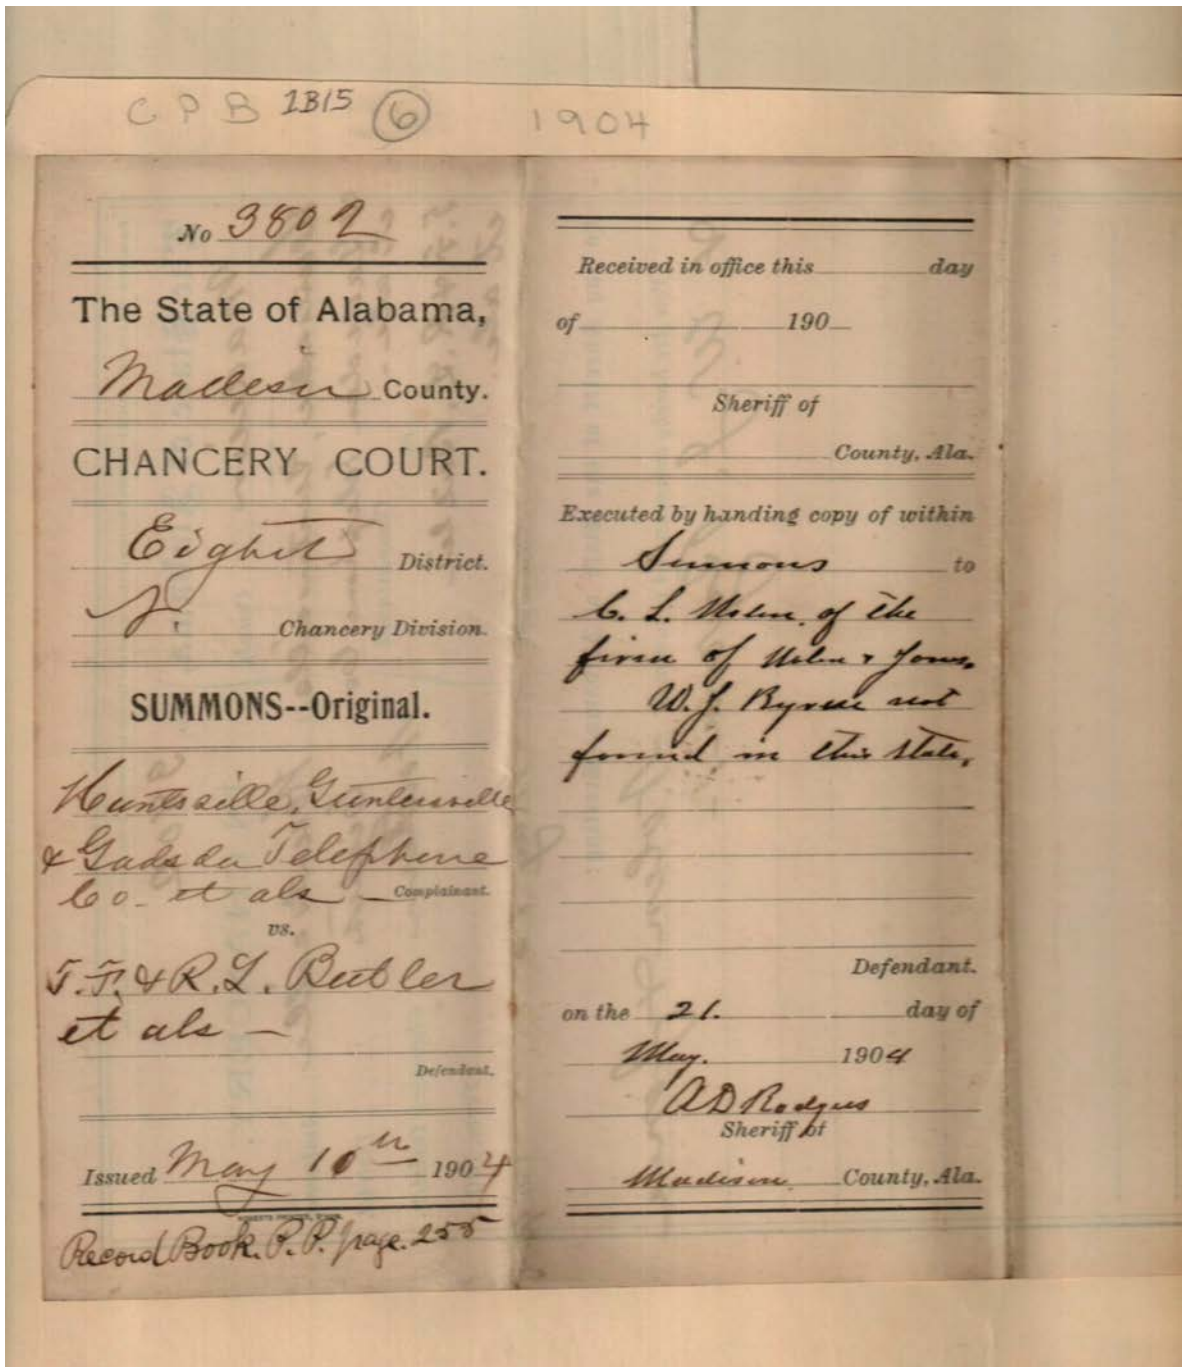 CPB 1B15 6 1904
No 3802
The State of Alabama,
Madison County.
CHANCERY COURT.
Eighth District.
N. Chancery Division.
SUMMONS--Original.
Huntsville, Guntersville
& Gadsden Telephone
Co. et als Complainant.
vs.
T.F. & R.L. Butler
et als —
Defendant.
Issued May 10th 1904
Record Book. P.P. page. 255
Received in office this day
of 190
Sheriff of
County, Ala.
Executed by handing copy of within
Summons to
C. L. Nolen of the
firm of Nolen & Jones.
W. J. Byrne not
found in this state,
Defendant.
on the 21. day of
May. 1904
A D Rodgers
Sheriff of
Madison County, Ala.